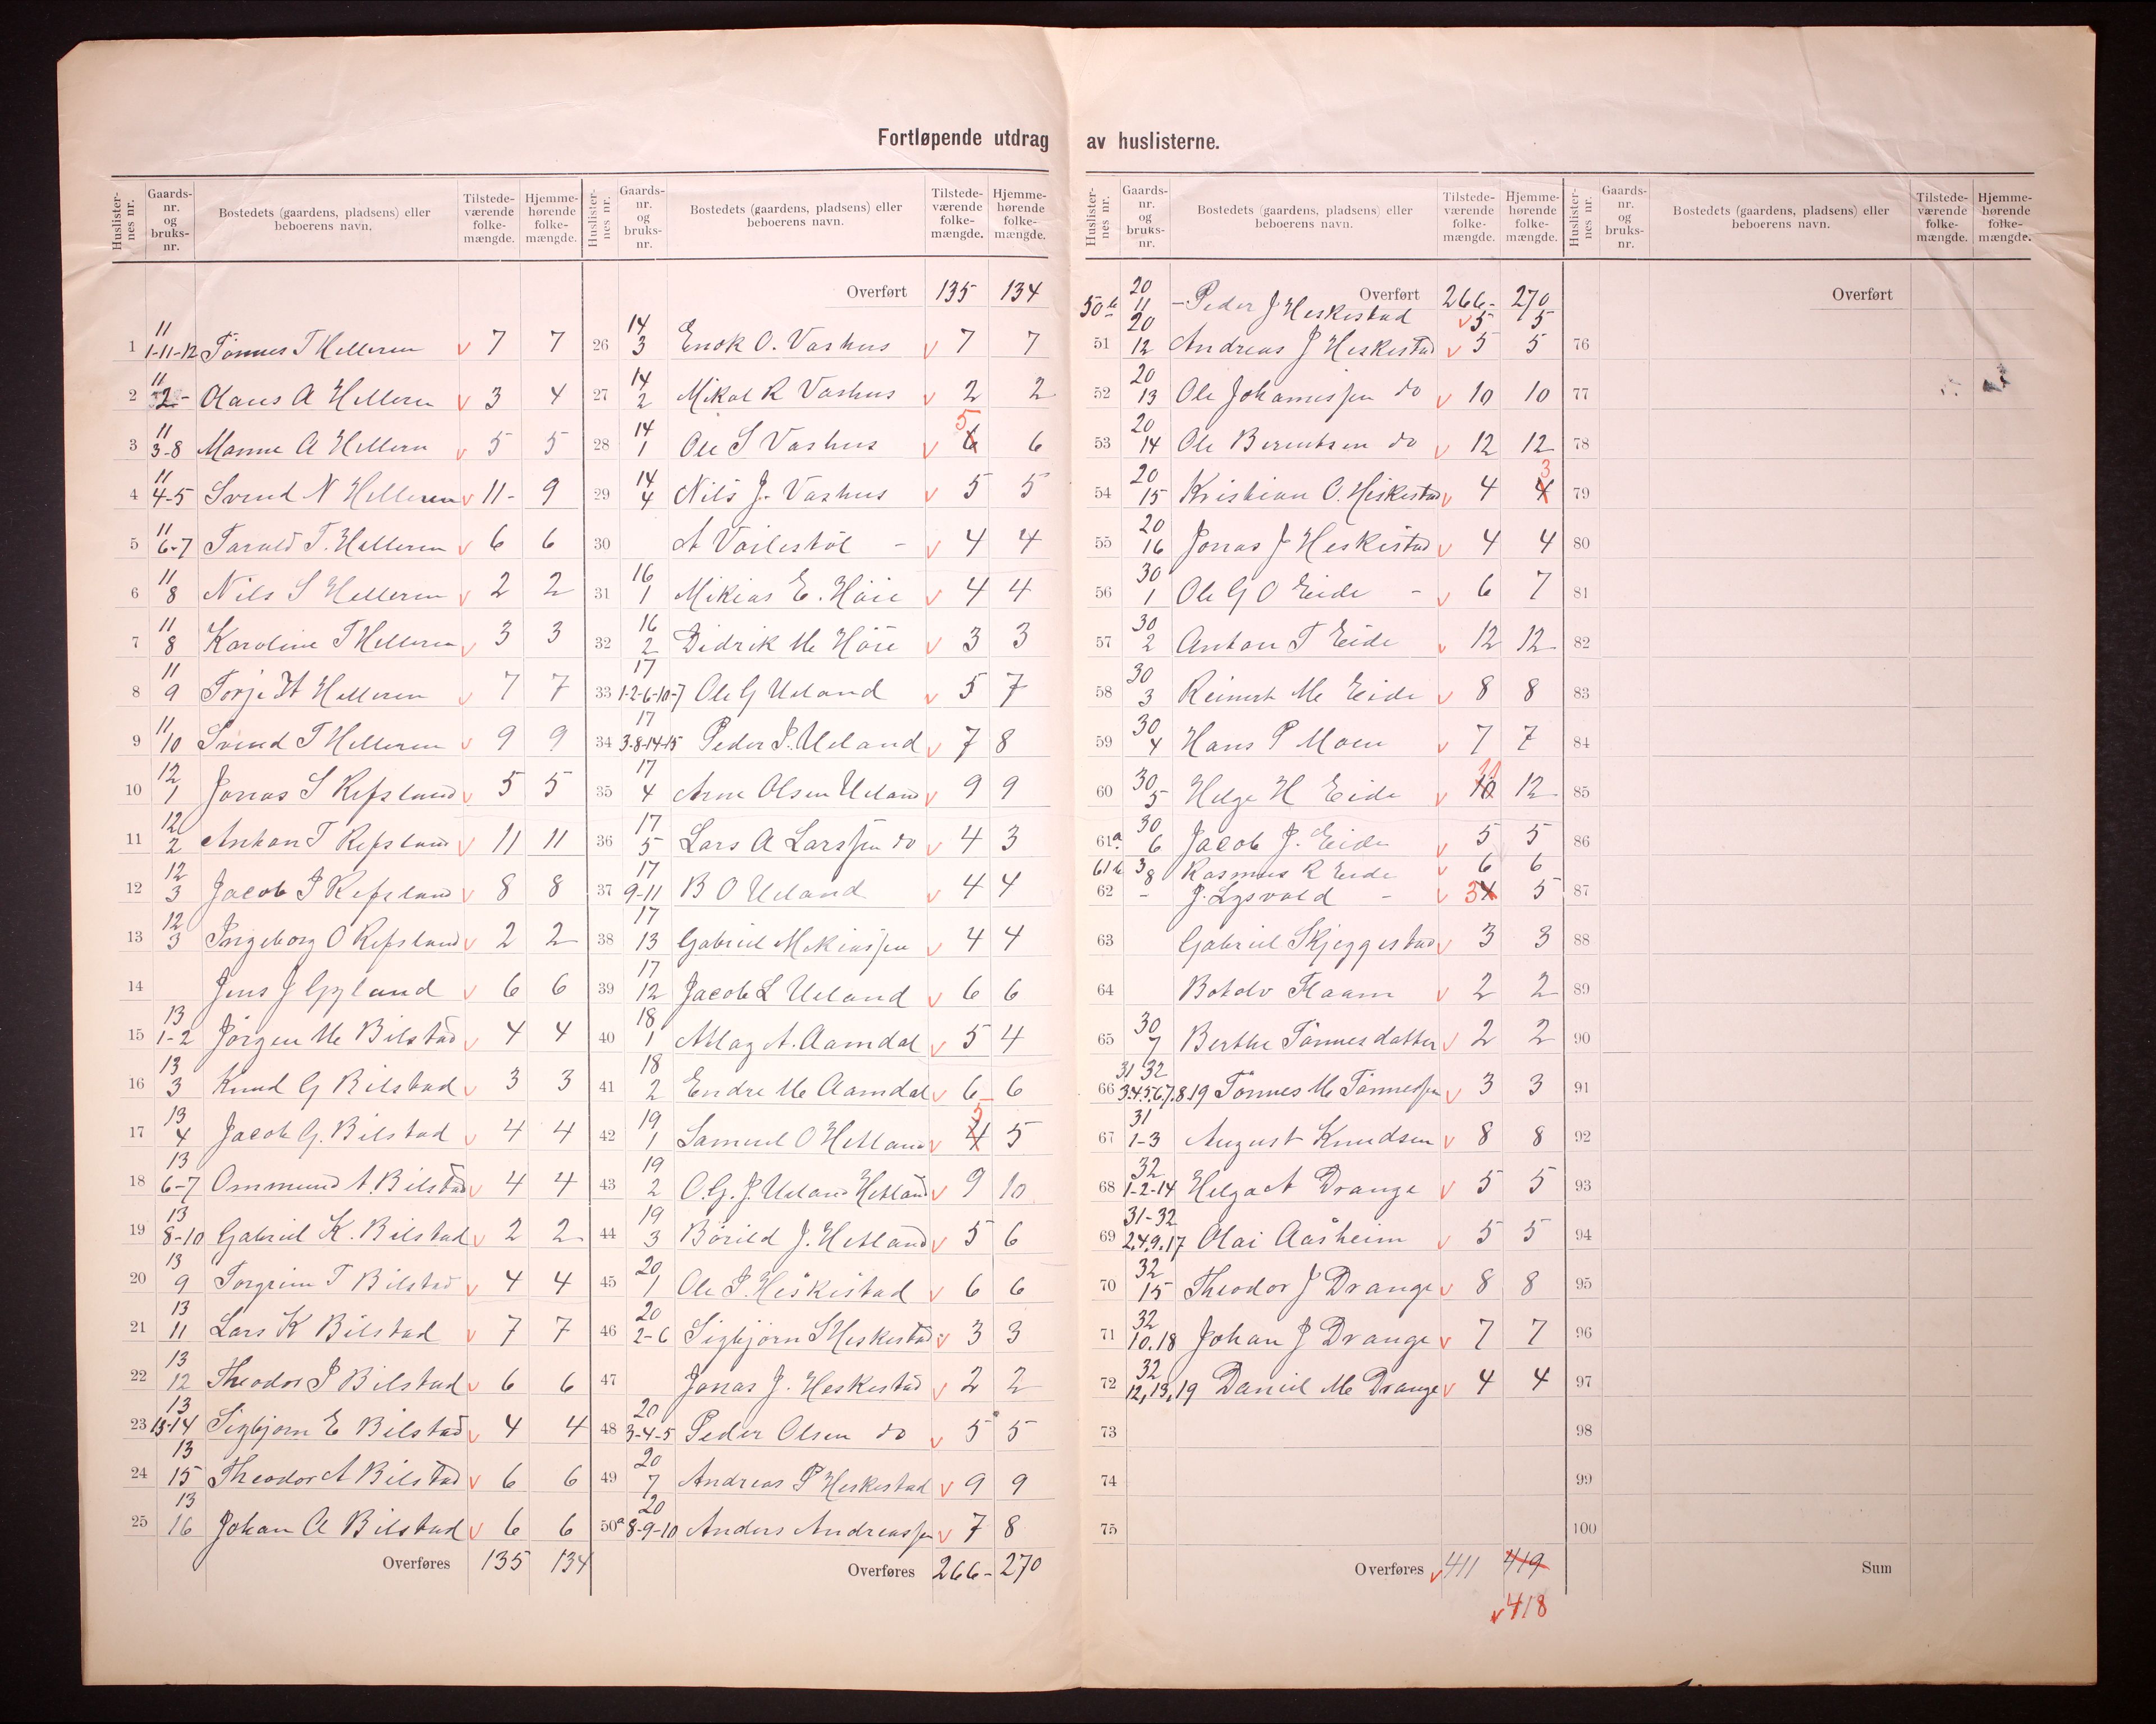 Fortløpende utdrag av huslisterne.
Huslister-nes nr. Gaards-nr. og bruks-nr. Bostedets (gaardens, pladsens) eller beboerens navn. Tilstede-værende folke-mængde. Hjemme-hørende folke-mængde.
1 11 1-11-12 Tönnes T Helleren v 7 7
2 11 2- Olaus A Helleren v 3 4
3 11 3-8 Manne A Hellern v 5 5
4 11 4-5 Svend N Helleren v 11- 9
5 11 6-7 Tarald T. Helleren v 6 6
6 11 8 Nils S Helleren v 2 2
7 11 8 Karoline T Helleren v 3 3
8 11 9 Torje H Helleren v 7 7
9 11 10 Svend T Helleren v 9 9
10 12 1 Jonas S Refsland v 5 5
11 12 2 Anton T Refsland v 11 11
12 12 3 Jacob J Refsland v 8 8
13 12 3 Ingeborg O Refsland v 2 2
14 Jens J Gyland v 6 6
15 13 1-2 Jörgen M Bilstad v 4 4
16 13 3 Knud G Bilstad v 3 3
17 13 4 Jacob G. Bilstad v 4 4
18 13 6-7 Ommund A. Bilstad v 4 4
19 13 8-10 Gabriel K. Bilstad v 2 2
20 13 9 Torgrim T Bilstad v 4 4
21 13 11 Lars K Bilstad v 7 7
22 13 12 Theodor J Bilstad v 6 6
23 13 13-14 Sigbjorn E Bilstad v 4 4
24 13 15 Theodor A Bilstad v 6 6
25 13 16 Johan A Bilstad v 6 6
Overføres 135 134
Huslister-nes nr. Gaards-nr. og bruks-nr. Bostedets (gaardens, pladsens) eller beboerens navn. Tilstede-værende folke-mængde. Hjemme-hørende folke-mængde.
Overført 135 134
26 14 3 Enok O. Vashus v 7 7
27 14 2 Mikal R Vashus v 2 2
28 14 1 Ole S Vashus v 6 5 6
29 14 4 Nils J. Vashus v 5 5
30 A - v 4 4
31 16 1 Mikias E. Höie v 4 4
32 16 2 Didrik M Höie v 3 3
33 17 1-2-6-10-7 Ole G Ueland v 5 7
34 17 3-8-14-15 Peder P. Ueland v 7 8
35 17 4 Arne Olsen Ueland v 9 9
36 17 5 Lars A Larssen do v 4 3
37 17 9-11 B O Ueland v 4 4
38 17 13 Gabriel Mikiassen v 4 4
39 17 12 Jacob L Ueland v 6 6
40 18 1 Atlag A. Aamdal v 5 4
41 18 2 Endre M Aamdal v 6 6
42 19 1 Samuel O Hetland v 4 5 5
43 19 2 O.G.J. Ueland Hetland v 9 10
44 19 3 Börild J. Hetland v 5 6
45 20 1 Ole P. Heskestad v 6 6
46 20 2-6 Sigbjörn S Heskestad v 3 3
47 Jonas J. Heskestad v 2 2
48 20 3-4-5 Peder Olsen do v 5 5
49 20 7 Andreas P Heskestad v 9 9
50a 20 8-9-10 Anders Andreassen v 7 8
Overføres 266- 270
Huslister-nes nr. Gaards-nr. og bruks-nr. Bostedets (gaardens, pladsens) eller beboerens navn. Tilstede-værende folke-mængde. Hjemme-hørende folke-mængde.
Overført 266- 270
50b 20 11 - Peder J Heskestad v 5 5
51 20 12 Andreas J Heskestad v 5 5
52 20 13 Ole Johannessen do v 10 10
53 20 14 Ole Berentsen do v 12 12
54 20 15 Kristian O. Heskestad v 4 4 3
55 20 16 Jonas J Heskestad v 4 4
56 30 1 Ole G O Eide - v 6 7
57 30 2 Anton T Eide v 12 12
58 30 3 Reinert M Eide v 8 8
59 30 4 Hans P Moen v 7 7
60 30 5 Helge H Eide v 10 11 12
61a 30 6 Jacob J. Eide v 5 5
61b 3 8 Rasmus R Eide v 6 6
62 - J. Lysvold - v 3 4 5
63 Gabriel Skjeggestad v 3 3
64 Botolv Flaam v 2 2
65 30 7 Berthe Tönnesdatter v 2 2
66 31 32 3.4.5.6.7.8.19 Tönnes M Tönnessen v 3 3
67 31 1-3 August Knudsen v 8 8
68 32 1-2-14 Helga A Drange v 5 5
69 31-32 2.4.9.17 Olai Aasheim v 5 5
70 32 15 Theodor J Drange v 8 8
71 32 10.18 Johan J Drange v 7 7
72 32 12,13,19 Daniel M Drange v 4 4
73
74
75
Overføres v 411 419
v 418
Huslister-nes nr. Gaards-nr. og bruks-nr. Bostedets (gaardens, pladsens) eller beboerens navn. Tilstede-værende folke-mængde. Hjemme-hørende folke-mængde.
Overført
76
77
78
79
80
81
82
83
84
85
86
87
88
89
90
91
92
93
94
95
96
97
98
99
100
Sum